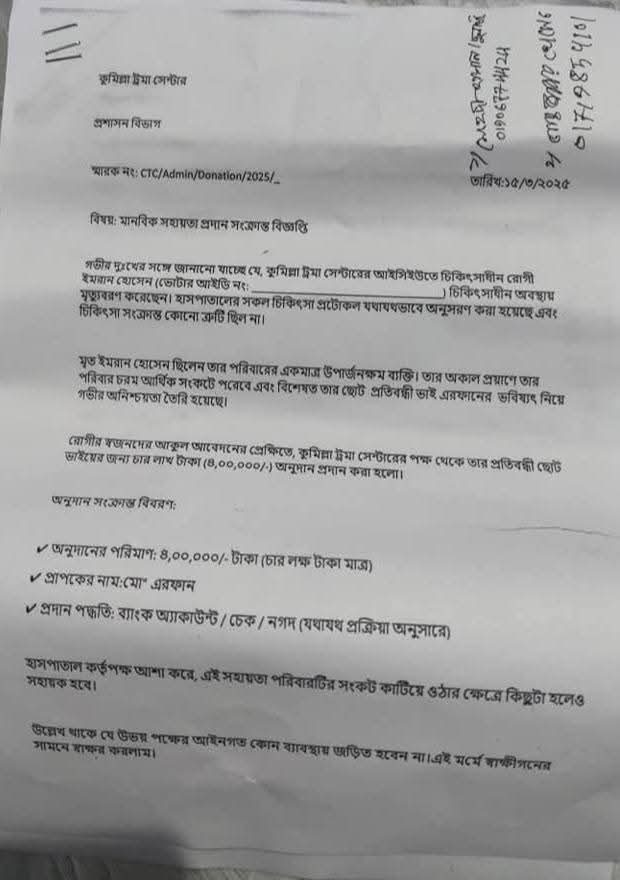 কুমিল্লা ট্রমা সেন্টার
প্রশাসন বিভাগ
স্মারক নং: CTC/Admin/Donation/2025/_
01906774424
তারিখ:১৫/৩/২০২৫
বিষয়: মানবিক সহায়তা প্রদান সংক্রান্ত বিজ্ঞপ্তি
গভীর দুঃখের সঙ্গে জানানো যাচ্ছে যে, কুমিল্লা ট্রমা সেন্টারের আইসিইউতে চিকিৎসাধীন রোগী
ইমরান হোসেন (ভোটার আইডি নং: ____________________) চিকিৎসাধীন অবস্থায়
মৃত্যুবরণ করেছেন। হাসপাতালের সকল চিকিৎসা প্রটোকল যথাযথভাবে অনুসরণ করা হয়েছে এবং
চিকিৎসা সংক্রান্ত কোনো ত্রুটি ছিল না।
মৃত ইমরান হোসেন ছিলেন তার পরিবারের একমাত্র উপার্জনক্ষম ব্যক্তি। তার অকাল প্রয়াণে তার
পরিবার চরম আর্থিক সংকটে পরেবে এবং বিশেষত তার ছোট প্রতিবন্ধী ভাই এরফানের ভবিষ্যৎ নিয়ে
গভীর অনিশ্চয়তা তৈরি হয়েছে।
রোগীর স্বজনদের আকুল আবেদনের প্রেক্ষিতে, কুমিল্লা ট্রমা সেন্টারের পক্ষ থেকে তার প্রতিবন্ধী ছোট
ভাইয়ের জন্য চার লাখ টাকা (৪,০০,০০০/-) অনুদান প্রদান করা হলো।
অনুদান সংক্রান্ত বিবরণ:
✓ অনুদানের পরিমাণ: ৪,০০,০০০/- টাকা (চার লক্ষ টাকা মাত্র)
✓ প্রাপকের নাম:মো" এরফান
✓ প্রদান পদ্ধতি: ব্যাংক অ্যাকাউন্ট / চেক / নগদ (যথাযথ প্রক্রিয়া অনুসারে)
হাসপাতাল কর্তৃপক্ষ আশা করে, এই সহায়তা পরিবারটির সংকট কাটিয়ে ওঠার ক্ষেত্রে কিছুটা হলেও
সহায়ক হবে।
উল্লেখ থাকে যে উভয় পক্ষের আইনগত কোন ব্যাবস্থায় জড়িত হবেন না।এই মর্মে স্বাক্ষীগনের
সামনে স্বাক্ষর করলাম।